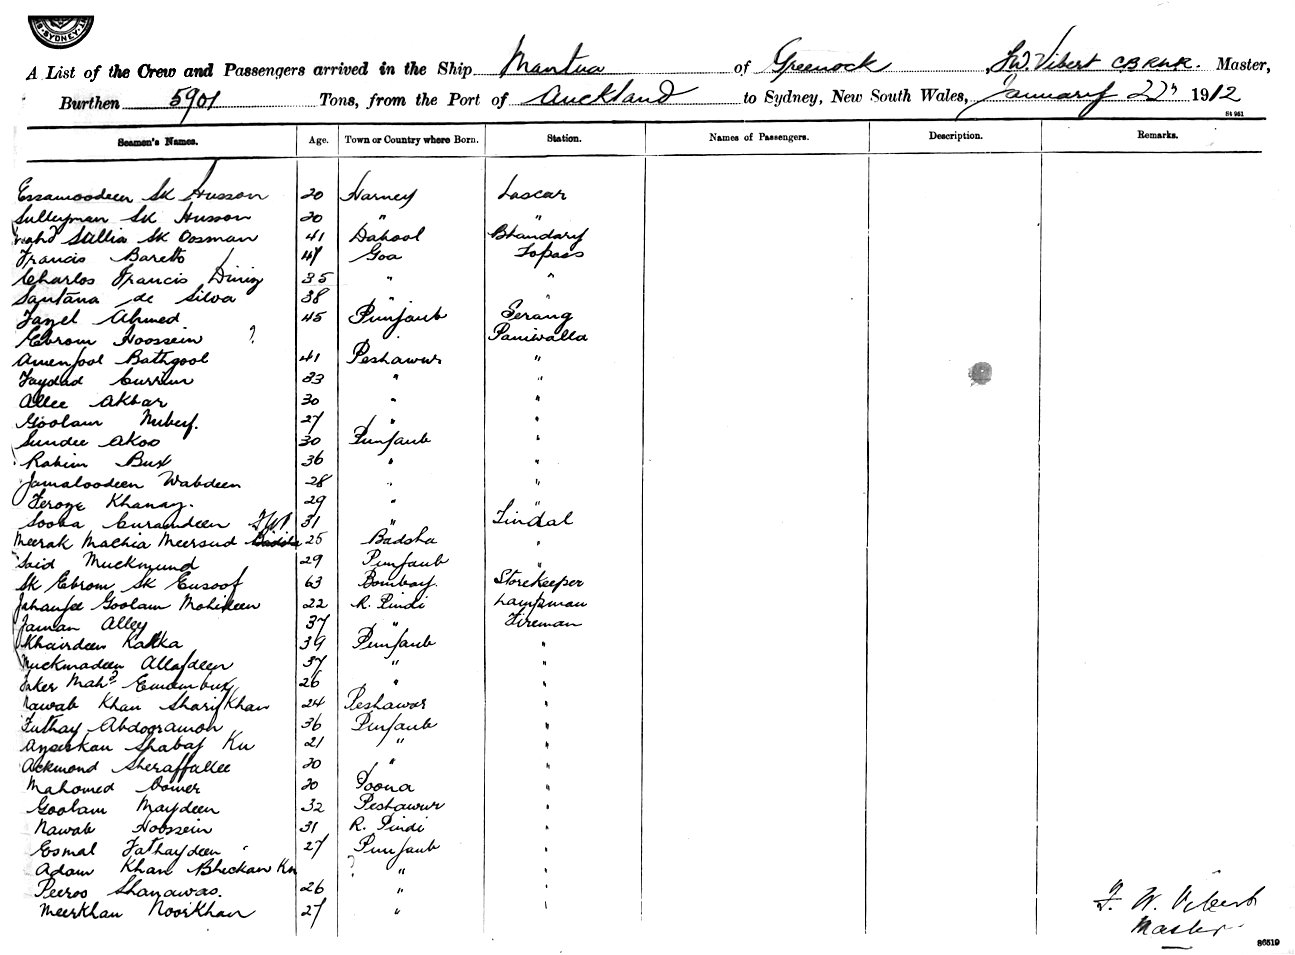 SYDNEY
A List of the Crew and Passengers arrived in the Ship Mantua of Greenock F.W. Vibert CB RNR. Master,
Burthen 5901 Tons, from the Port of Auckland to Sydney, New South Wales, January 1912
St 961
Seamen's Names. Age. Town or Country where Born. Station. Names of Passengers. Description. Remarks.
Essamoodeen Sk Husson 20 Harney Lascar
Sulleyman Sk Husson 20 " "
Sk Oosman 41 Dabool Bhandary
Francis Baretto 47 Goa Topass
Charlos Francis Diniz 35 " "
Santana de Silva 38 " "
Fazel Ahmed 45 Punjaub Serang
Ebrom Hoossein ? Paniwalla
Amenjool Bathgool 41 Peshawur "
Faydad Currim 33 " "
Allee Akbar 30 " "
Goolam 27 " "
Sundee Akoo 30 Punjaub "
Rahim Bux 36 " "
Jamaloodeen Wabdeen 28 " "
Feroze Khanay. 29 " "
Sooba Curamdeen 31 " Tindal
Meerak Machia Meersud 25 Badsha "
Said Muckmund 29 Punjaub "
Sk Ebrom Sk Eusoof 63 Bombay. Storekeeper
Goolam Mohideen 22 R. Pindi Lampman
Jaman Alley 37 " Fireman
Khairdeen Kakka 39 Punjaub "
Muckmadeen Allafdeen 37 " "
Faker Mahd Emambux 26 " "
Nawab Khan Sharif Khan 24 Peshawar "
Futhay Abdooramon 36 Punjaub "
Shabaf Kn 21 " "
Ackmond Sheraffallee 20 " "
Mahomed Oomer 20 Poona "
Goolam Maydeen 32 Peshawur "
Nawab Hoossein 31 R. Pindi "
Esmal Fathaydeen 27 Punjaub "
Adam Khan Bhickan Kn ? " "
Peeroo Shanawas. 26 " "
Meerkhan Noorkhan 27 " "
F. W. Vibert
Master
S6519